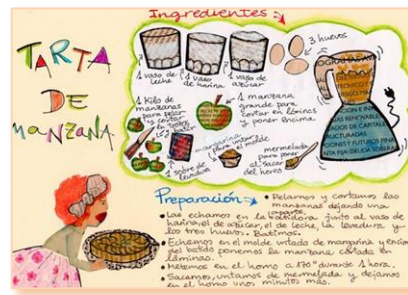 Ingredientes
TARTA
DE
MANZANA
3 huevos
1 vaso de
leche
1 vaso
de harina
1 vaso de
azúcar
1 Kilo de
manzanas
para pelar
y cortar
en trozos
1 manzana
grande para
cortar en láminas
y poner encima.
margarina
para untar molde
1 sobre de
levadura
mermelada
para poner
al sacar
del horno
Preparación
• Pelamos y cortamos las
manzanas dejando una
aparte.
• Las echamos en la batidora junto al vaso de
harina, el de azúcar, el de leche, la levadura y
los tres huevos. Batimos.
• Echamos en el molde untado de margarina y encima
del batido ponemos la manzana cortada en
láminas.
• Metemos en el horno a 170° durante 1 hora.
• Sacamos, untamos de mermelada y dejamos
en el horno unos minutos más.